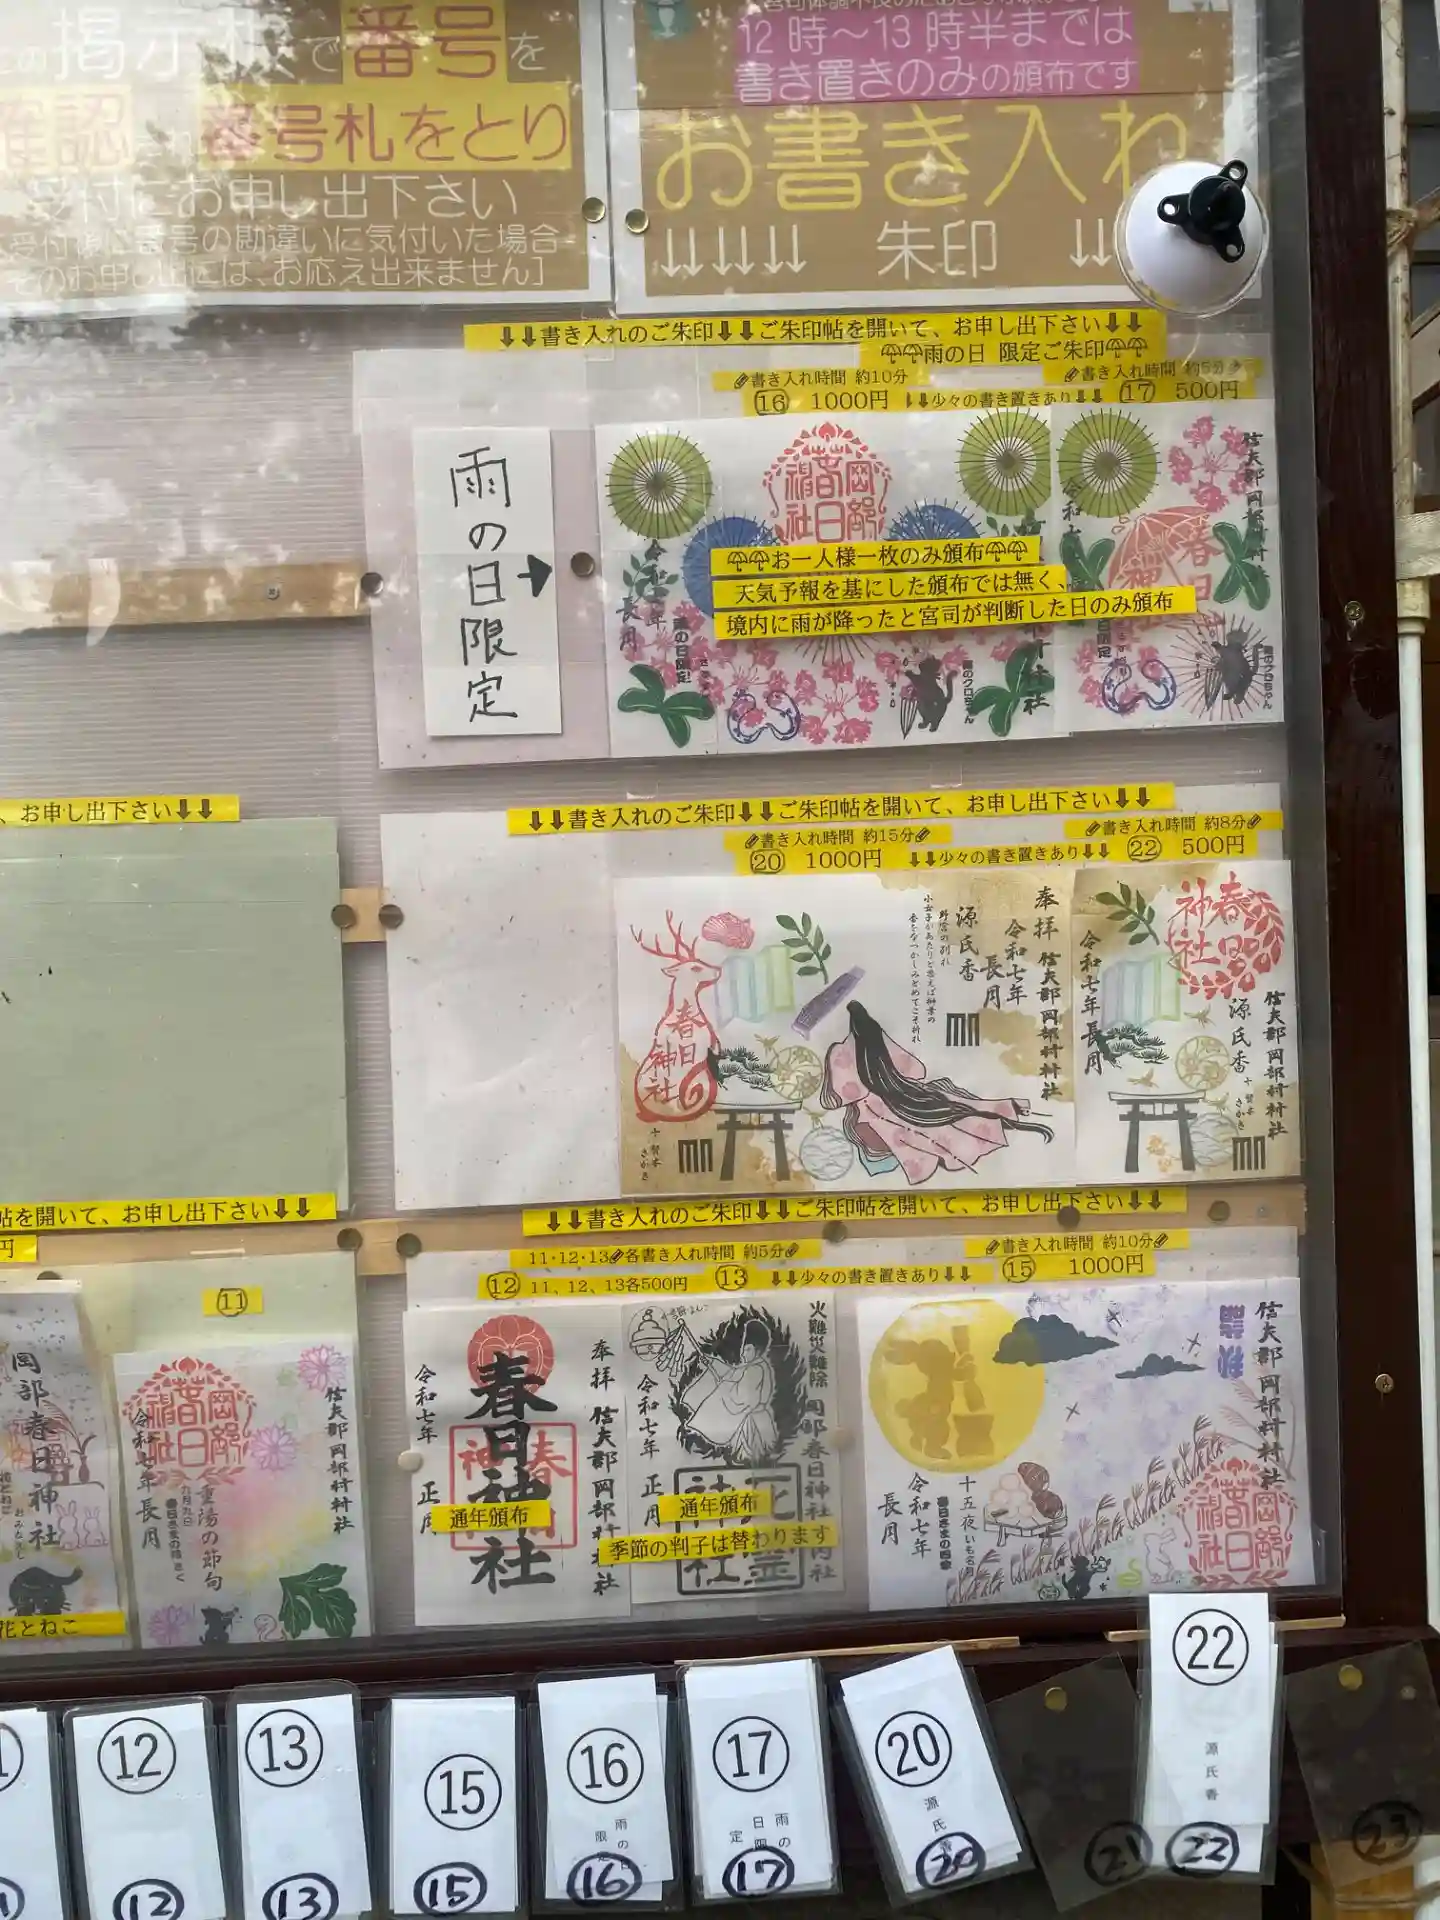 掲示板で番号を
確認
番号札をとり
受付にお申し出下さい
受付後に番号の勘違いに気付いた場合
そのお申し出には、お応え出来ません]
12時〜13時半までは
書き置きのみの頒布です
お書き入れ
↓↓↓↓↓ 朱印 ↓↓
⬇⬇書き入れのご朱印⬇⬇ご朱印帖を開いて、お申し出下さい⬇⬇
雨の日 限定ご朱印
書き入れ時間 約10分
書き入れ時間 約5分
⑯ 1000円 ⬇⬇少々の書き置きあり⬇⬇ ⑰ 500円
雨の日限定
岡部春日神社
お一人様一枚のみ頒布
天気予報を基にした頒布では無く、
境内に雨が降ったと宮司が判断した日のみ頒布
令和七年
長月
雨の日限定
雨のクロちゃん
信夫郡岡部村村社
春日神社
、お申し出下さい⬇⬇
⬇⬇書き入れのご朱印⬇⬇ご朱印帖を開いて、お申し出下さい⬇⬇
書き入れ時間 約15分
書き入れ時間 約8分
⑳ 1000円 ⬇⬇少々の書き置きあり⬇⬇ ㉒ 500円
奉拝 信夫郡岡部村村社
令和七年
長月
源氏香
野宮の別れ
春日神社
十 賢木
さかき
春日神社
信夫郡岡部村村社
源氏香
十 賢木
さかき
令和七年長月
帖を開いて、お申し出下さい⬇⬇
円
⑪
⬇⬇書き入れのご朱印⬇⬇ご朱印帖を開いて、お申し出下さい⬇⬇
11・12・13各書き入れ時間 約5分
書き入れ時間 約10分
⑫ 11、12、13各500円 ⑬ ⬇⬇少々の書き置きあり⬇⬇ ⑮ 1000円
岡部春日神社
花とねこ
岡部春日神社
信夫郡岡部村村社
重陽の節句
九月九日
令和七年長月
奉拝 信夫郡岡部村村社
春日神社
令和七年 正月
通年頒布
火難災難除 岡部春日神社
令和七年 正月
通年頒布
季節の判子は替わります
信夫郡岡部村村社
岡部春日神社
十五夜いも名月
令和七年
長月
⑫
⑬
⑮
⑯
雨の
⑰
雨の
日限
定
⑳
源氏香
㉒
源氏香
⑫
⑬
⑮
⑯
⑰
⑳
㉑
㉒
㉓